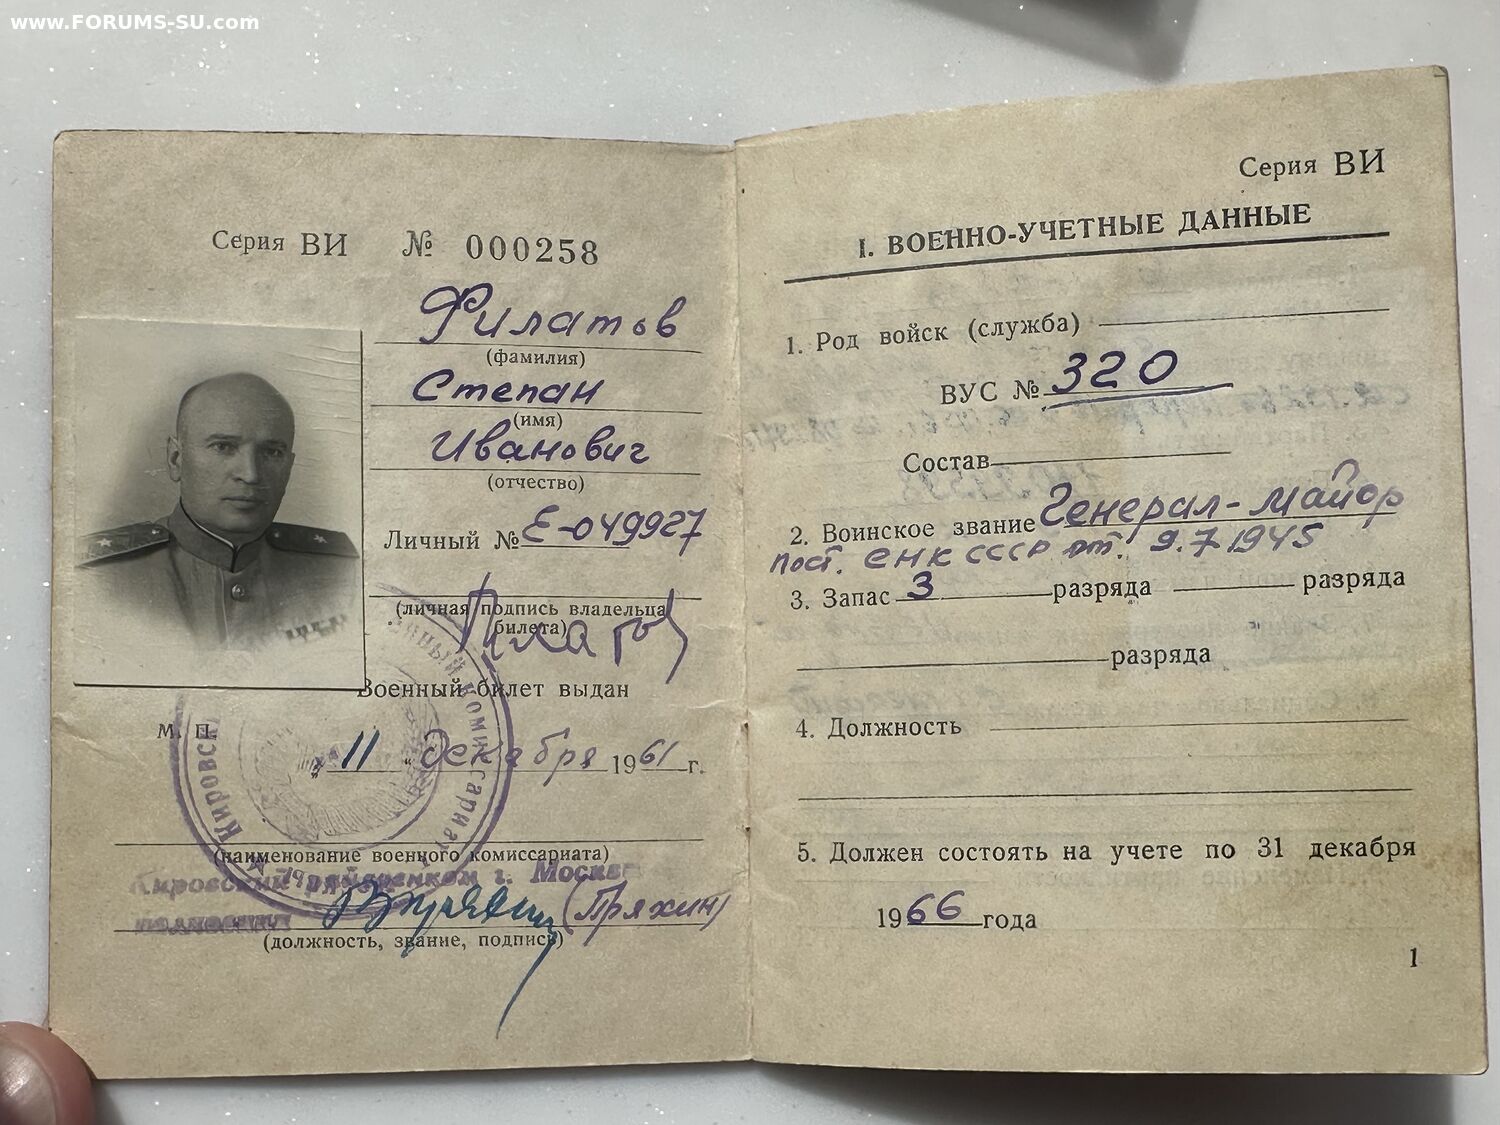 www.FORUMS-SU.com
Серия ВИ № 000258
Филатов
(фамилия)
Степан
(имя)
Иванович
(отчество)
Личный № Е-049927
(личная подпись владельца билета)
Военный билет выдан
М. П.
„11" декабря 1961 г.
(наименование военного комиссариата)
Кировский г. Москвы
(Пряхин)
(должность, звание, подпись)
Кировск
комиссариат
Серия ВИ
I. ВОЕННО-УЧЕТНЫЕ ДАННЫЕ
1. Род войск (служба)
ВУС № 320
Состав
2. Воинское звание Генерал-майор
Пост. СНК СССР от. 9.7 1945
3. Запас 3 разряда разряда
разряда
4. Должность
5. Должен состоять на учете по 31 декабря
1966 года
1